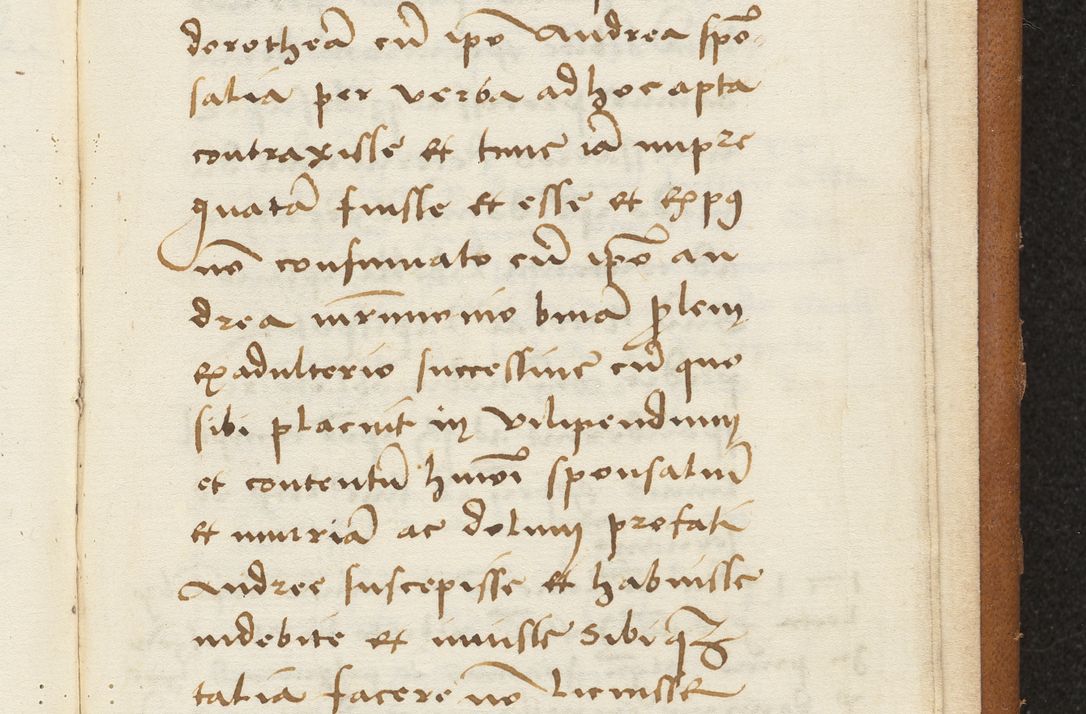 dorotheā cū ipō Andrea spō-
salia per verba ad hoc apta
contraxisse et tunc iā impre
gnatā fuisse et esse et exp9
nō consumato cū ipō an
drea mr̄imonio binā prolem
ex adulterio successiue cū quo
sibi placuit in vilipendium
et contentū hmōi sponsaliū
et iniuriā ac dolum prefati
Andree suscepisse et habuisse
indebite et iniuste sibi qꝫ
talia facere nō licuisse